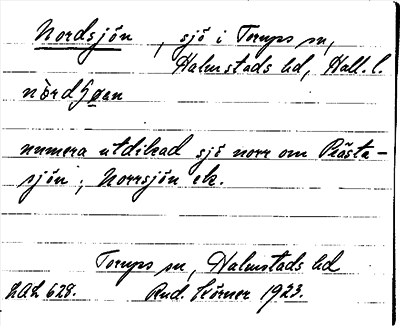 Nordsjön, sjö i Torups sn,
Halmstads hd, Hall. l.
nòrdʃøan
numera utdikad sjö norr om Prästa-
sjön; Norrsjön ek.
Torups sn, Halmstads hd
LAL 628. Rud. Körner 1923.